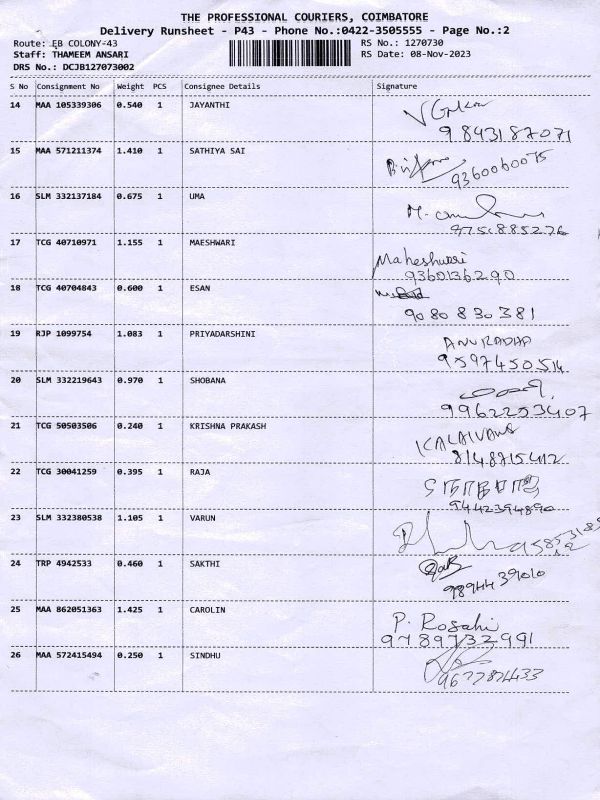 THE PROFESSIONAL COURIERS, COIMBATORE
Delivery Runsheet - P43 - Phone No.:0422-3505555 - Page No.:2
Route: EB COLONY-43 RS No.: 1270730
Staff: THAMEEM ANSARI RS Date: 08-Nov-2023
DRS No.: DCJB127073002
S No Consignment No Weight PCS Consignee Details Signature
14 MAA 105339306 0.540 1 JAYANTHI
9843187071
15 MAA 571211374 1.410 1 SATHIYA SAI
9360060075
16 SLM 332137184 0.675 1 UMA
9750885276
17 TCG 40710971 1.155 1 MAESHWARI Maheshwari
9360136290
18 TCG 40704843 0.600 1 ESAN
9080830381
19 RJP 1099754 1.083 1 PRIYADARSHINI ANURADHA
9597450514
20 SLM 332219643 0.970 1 SHOBANA
9962253407
21 TCG 50503506 0.240 1 KRISHNA PRAKASH KALAIVANI
8148715412
22 TCG 30041259 0.395 1 RAJA
9442394890
23 SLM 332380538 1.105 1 VARUN
24 TRP 4942533 0.460 1 SAKTHI
9894439010
25 MAA 862051363 1.425 1 CAROLIN P. Rosahi
9789732991
26 MAA 572415494 0.250 1 SINDHU
9677874433